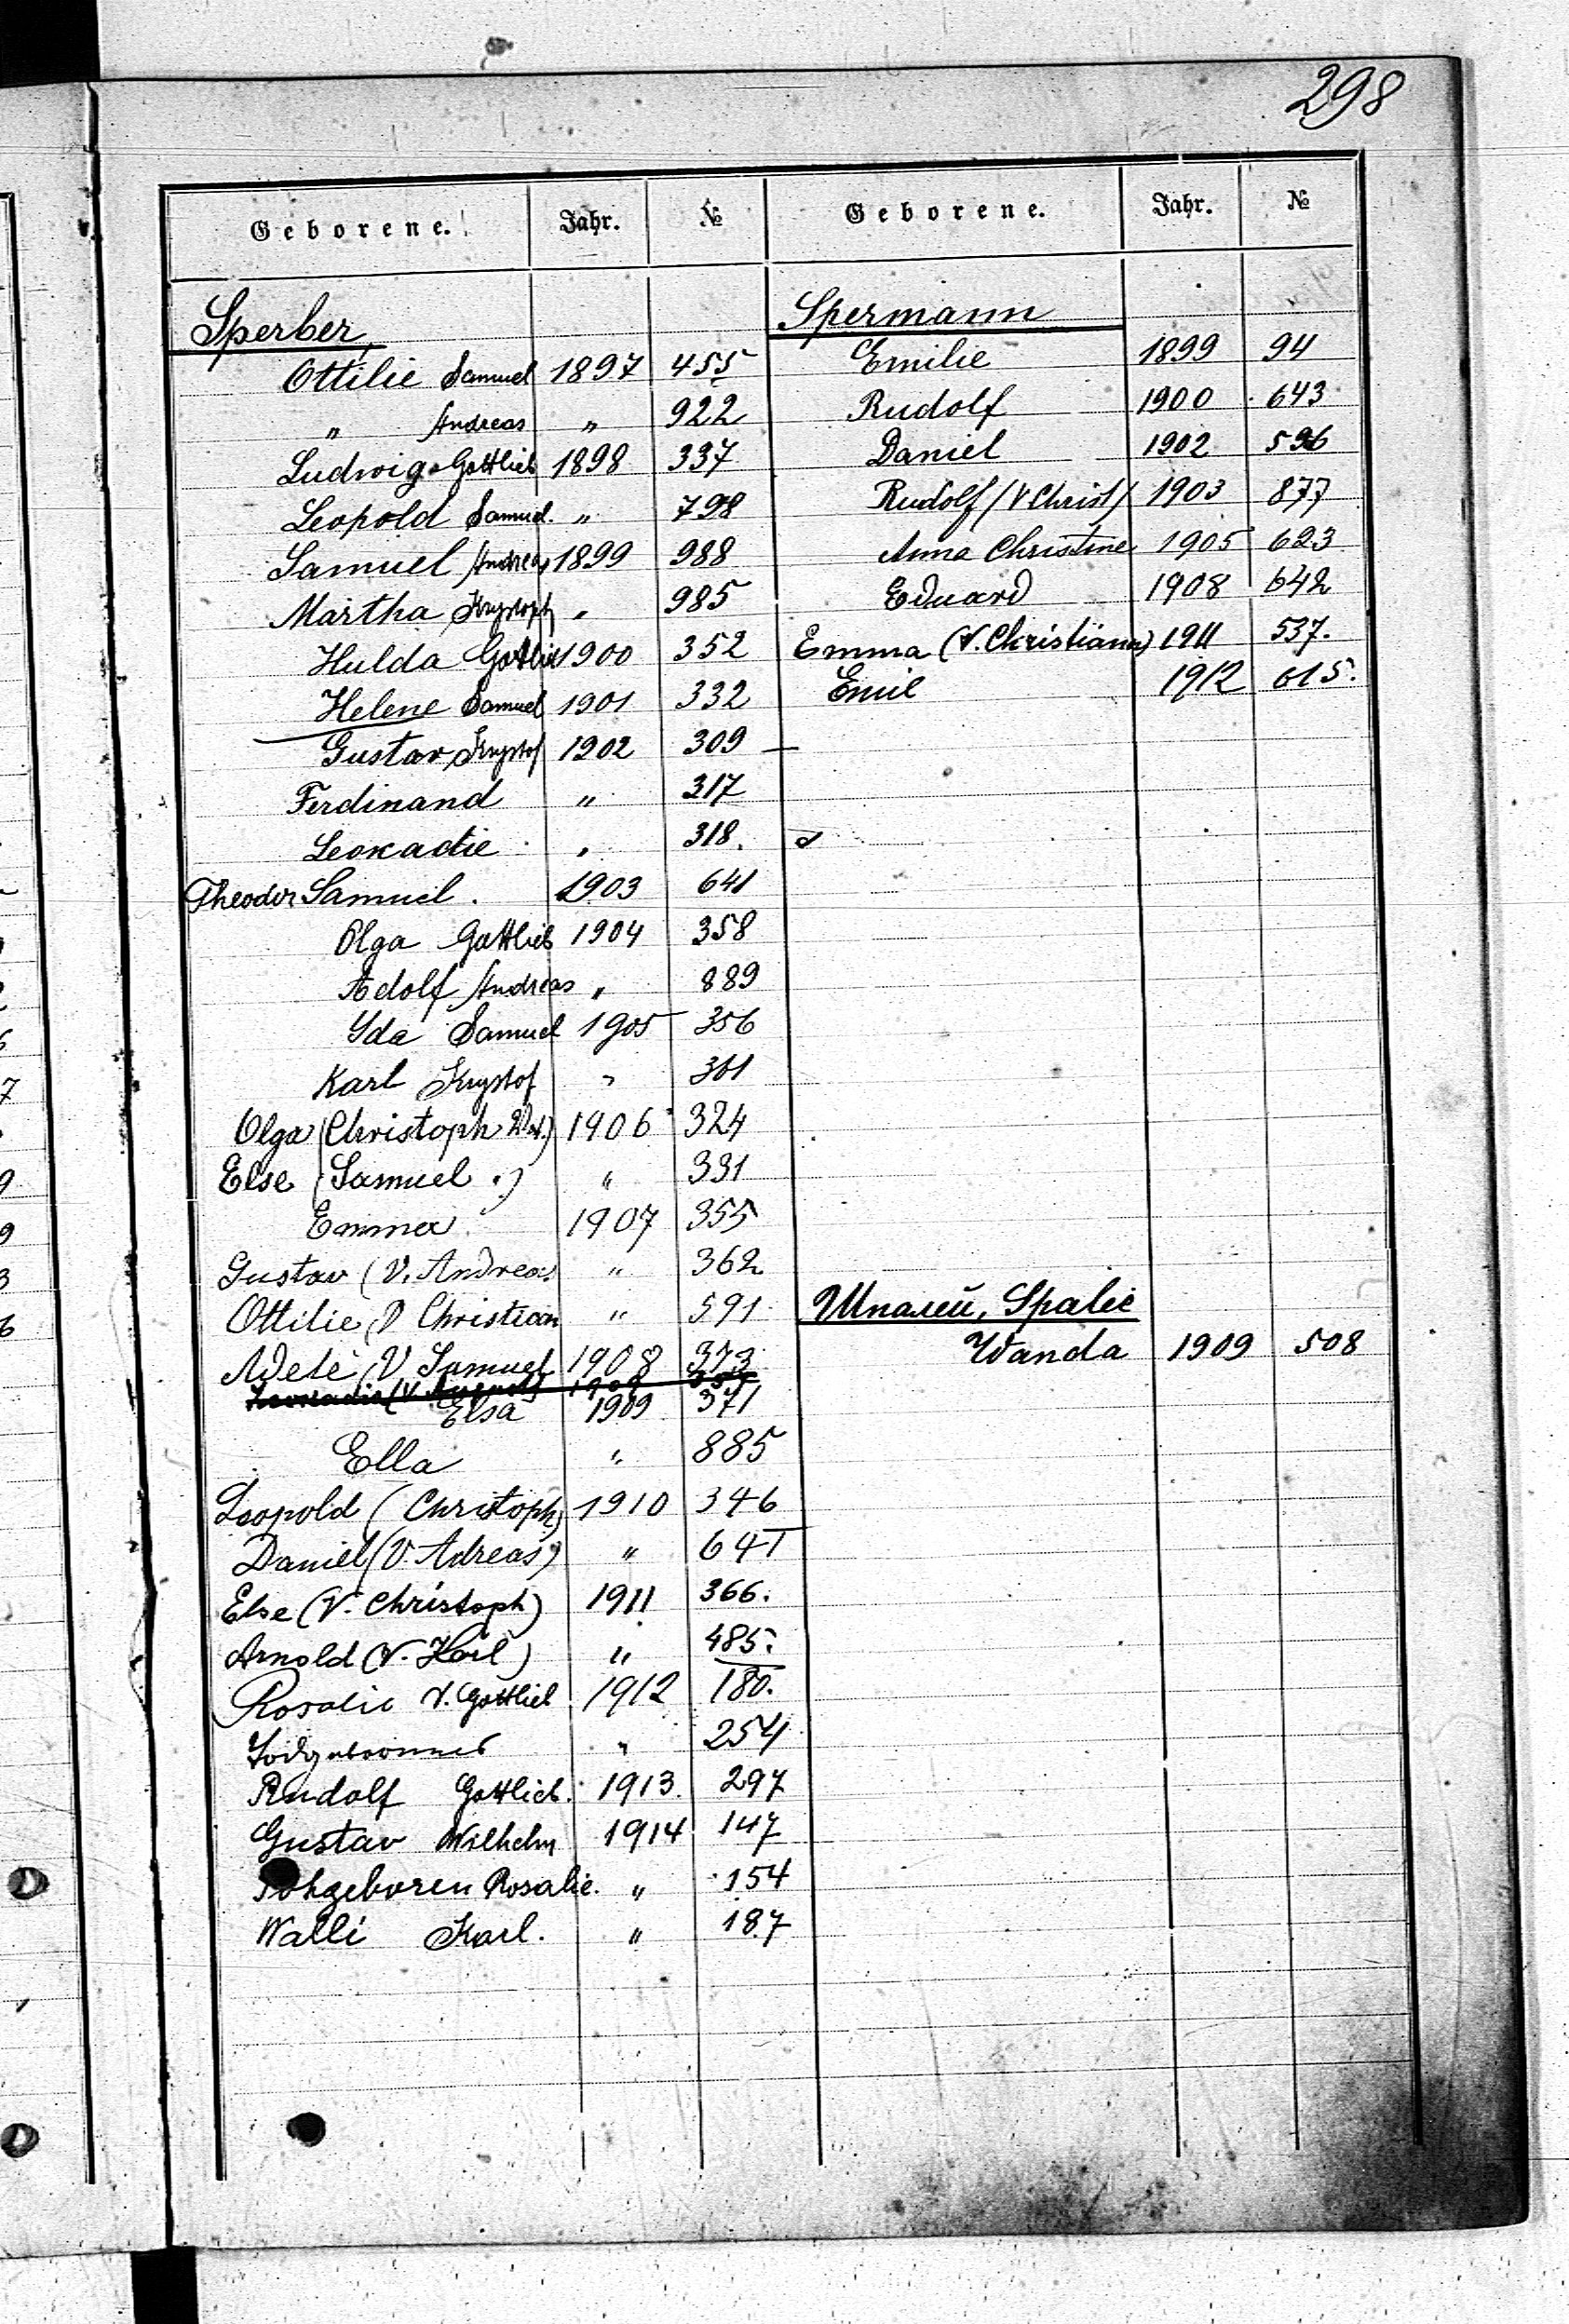 298
Geborene. Jahr. №
Sperber,
Ottilie Samuel 1897 455
" Andreas " 922
Ludwig Gottlieb 1898 337
Leopold Samuel. " 798
Samuel Andreas 1899 988
Martha Krystoph " 985
Hulda Gottlieb 1900 352
Helene Samuel 1901 332
Gustav Krystof 1902 309
Ferdinand " 317
Leokadie " 318.
Theodor Samuel. 1903 641
Olga Gottlieb 1904 358
Adolf Andreas " 889
Ida Samuel 1905 356
Karl Krystof " 301
Olga (Christoph 1906 324
Else (Samuel .) " 331
Emma 1907 355
Gustav (V. Andreas " 362
Ottilie (V Christian " 591
Adele (V Samuel 1908 373
Leokadie (V. 1909
Elsa 1909 371
Ella " 885
Leopold (Christoph) 1910 346
Daniel (V. Adreas) " 641
Else (V. Christoph) 1911 366.
Arnold (V. Karl) " 485.
Rosalie V. Gottlieb 1912 180.
" 254
Rudolf Gottlieb. 1913. 297
Gustav Wilhelm 1914 147
Rosalie. " 154
Walli Karl. " 187
Geborene. Jahr. №
Spermann
Emilie 1899 94
Rudolf 1900 643
Daniel 1902 596
Rudolf (V Christ) 1903 877
Anna Christine 1905 623
Eduard 1908 642
Emma (V. Christian) 1911 537.
Emil 1912 615.
Шпалей, Spalie
Wanda 1909 508